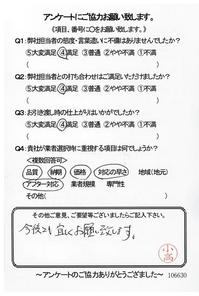 アンケートにご協力お願い致します。
(項目、番号に○をお願い致します。)
Q1: 弊社担当者の態度・言葉遣いに不備はありませんでしたか?
⑤大変満足 ④満足 ③普通 ②やや不満 ①不満
( )
Q2: 弊社担当者との打ち合わせはご満足いただけましたか?
⑤大変満足 ④満足 ③普通 ②やや不満 ①不満
( )
Q3: お引き渡し時の仕上がりはいかがでしたか?
⑤大変満足 ④満足 ③普通 ②やや不満 ①不満
( )
Q4: 貴社が業者選択時に重要視する項目は何でしょうか?
<複数回答可>
品質 納期 価格 対応の早さ 地域(地元)
アフター対応 業者規模 専門性
その他( )
その他ご意見、ご要望等ございましたらご記入下さい。
今後とも宜しくお願い致します。
小高
～アンケートのご協力ありがとうございました～ 106630